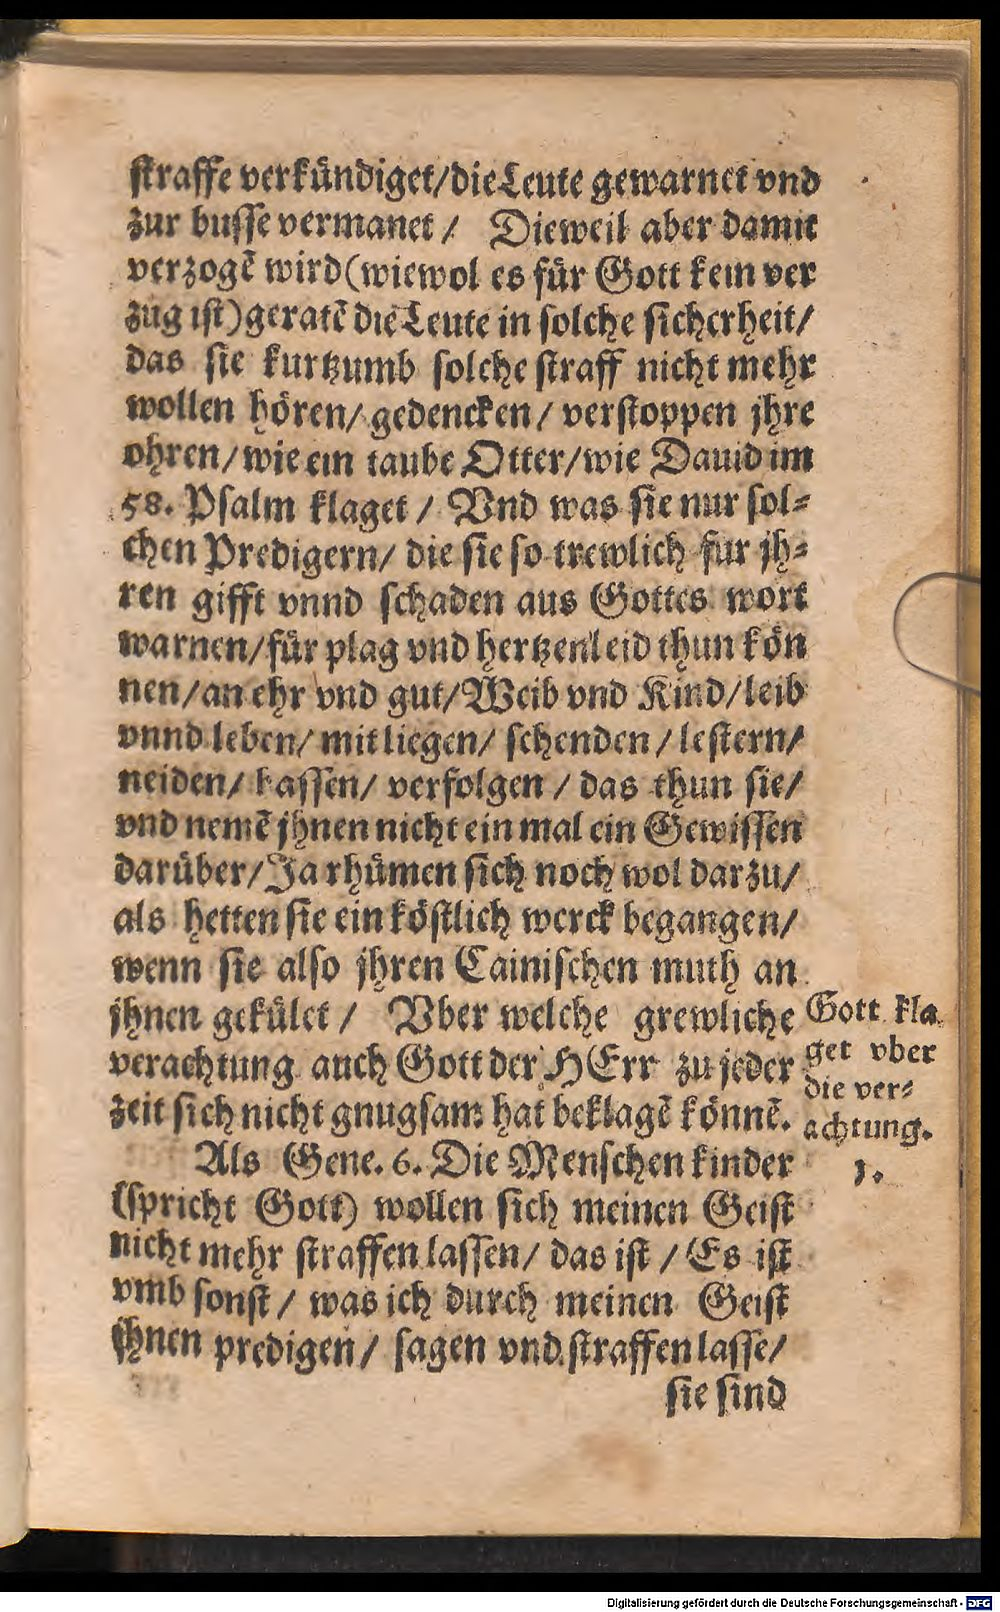 straffe verkündiget/die Leute gewarnet vnd
zur busse vermanet / Dieweil aber damit
verzogẽ wird(wiewol es für Gott kein ver
zug ist)geratẽ die Leute in solche sicherheit/
das sie kurtzumb solche straff nicht mehr
wollen hören/ gedencken / verstoppen jhre
ohren/wie ein taube Otter/wie Dauid im
58. Psalm klaget / Vnd was sie nur sol-
chen Predigern/ die sie so trewlich für jh-
ren gifft vnnd schaden aus Gottes wort
warnen/für plag vnd hertzenleid thun kön
nen/an ehr vnd gut/Weib vnd Kind/leib
vnnd leben/ mit liegen/ schenden / lestern/
neiden/ hassen/ verfolgen / das thun sie/
vnd nemẽ jhnen nicht ein mal ein Gewissen
darüber/Ja rhümen sich noch wol darzu/
als hetten sie ein köstlich werck begangen/
wenn sie also jhren Cainischen muth an
jhnen gekület / Vber welche grewliche
verachtung auch Gott der HErr zu jeder
zeit sich nicht gnugsam hat beklagẽ könnẽ.
Gott kla
get vber
die ver-
achtung.
1.
Als Gene. 6. Die Menschen kinder
(spricht Gott) wollen sich meinen Geist
nicht mehr straffen lassen/ das ist / Es ist
vmb sonst / was ich durch meinen Geist
jhnen predigen / sagen vnd straffen lasse/
sie sind
Digitalisierung gefördert durch die Deutsche Forschungsgemeinschaft - DFG